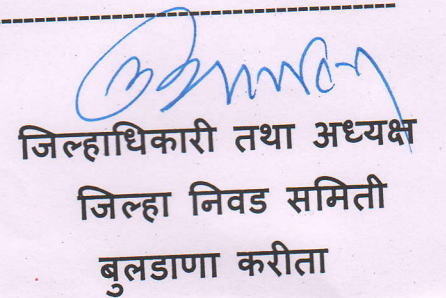 जिल्हाधिकारी तथा अध्यक्ष
जिल्हा निवड समिती
बुलडाणा करीता